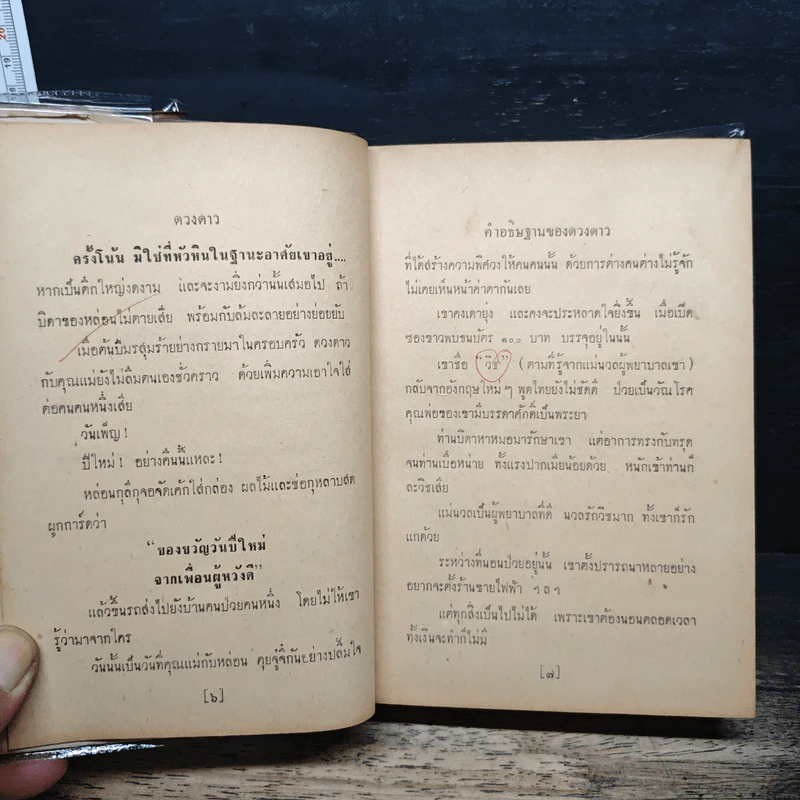 ดวงดาว
ครั้งโน้น มิใช่ที่หัวหินในฐานะอาศัยเขาอยู่....
หากเป็นตึกใหญ่งดงาม และจะงามยิ่งกว่านั้นเสมอไป ถ้า
บิดาของหล่อนไม่ตายเสีย พร้อมกับล้มละลายอย่างย่อยยับ
เมื่อต้นบีมรสุมร้ายย่างกรายมาในครอบครัว ดวงดาว
กับคุณแม่ยังไม่ลืมตนเองชั่วคราว ด้วยเพิ่มความเอาใจใส่
ต่อคนคนหนึ่งเสีย
วันเพ็ญ!
ปีใหม่! อย่างคืนนี้แหละ!
หล่อนกุลีกุจอจัดเค้กใส่กล่อง ผลไม้และช่อกุหลาบสด
ผูกการ์ดว่า
"ของขวัญวันปีใหม่
จากเพื่อนผู้หวังดี"
แล้วขึ้นรถส่งไปยังบ้านคนป่วยคนหนึ่ง โดยไม่ให้เขา
รู้ว่ามาจากใคร
วันนั้นเป็นวันที่คุณแม่กับหล่อน คุยจู๋จี๋กันอย่างปลื้มใจ
[๖]
คำอธิษฐานของดวงดาว
ที่ได้สร้างความพิศวงให้คนคนนั้น ด้วยการต่างคนต่างไม่รู้จัก
ไม่เคยเห็นหน้าค่าตากันเลย
เขาคงเดายุ่ง และคงจะประหลาดใจยิ่งขึ้น เมื่อเปิด
ซองขาวพบธนบัตร ๑๐๐ บาท บรรจุอยู่ในนั้น
เขาชื่อ "วิช" (ตามที่รู้จากแม่นวลผู้พยาบาลเขา)
กลับจากอังกฤษใหม่ๆ พูดไทยยังไม่ชัดดี ป่วยเป็นวัณโรค
คุณพ่อของเขามีบรรดาศักดิ์เป็นพระยา
ท่านบิดาหาหมอมารักษาเขา แต่อาการทรงกับทรุด
จนท่านเบื่อหน่าย ทั้งแรงปากเมียน้อยด้วย หนักเข้าท่านก็
ละวิชเสีย
แม่นวลเป็นผู้พยาบาลที่ดี นวลรักวิชมาก ทั้งเขาก็รัก
แกด้วย
ระหว่างที่นอนป่วยอยู่นั้น เขาตั้งปรารถนาหลายอย่าง
อยากจะตั้งร้านขายไฟฟ้า ฯลฯ
แต่ทุกสิ่งเป็นไปไม่ได้ เพราะเขาต้องนอนตลอดเวลา
ทั้งเงินจะทำก็ไม่มี
[๗]